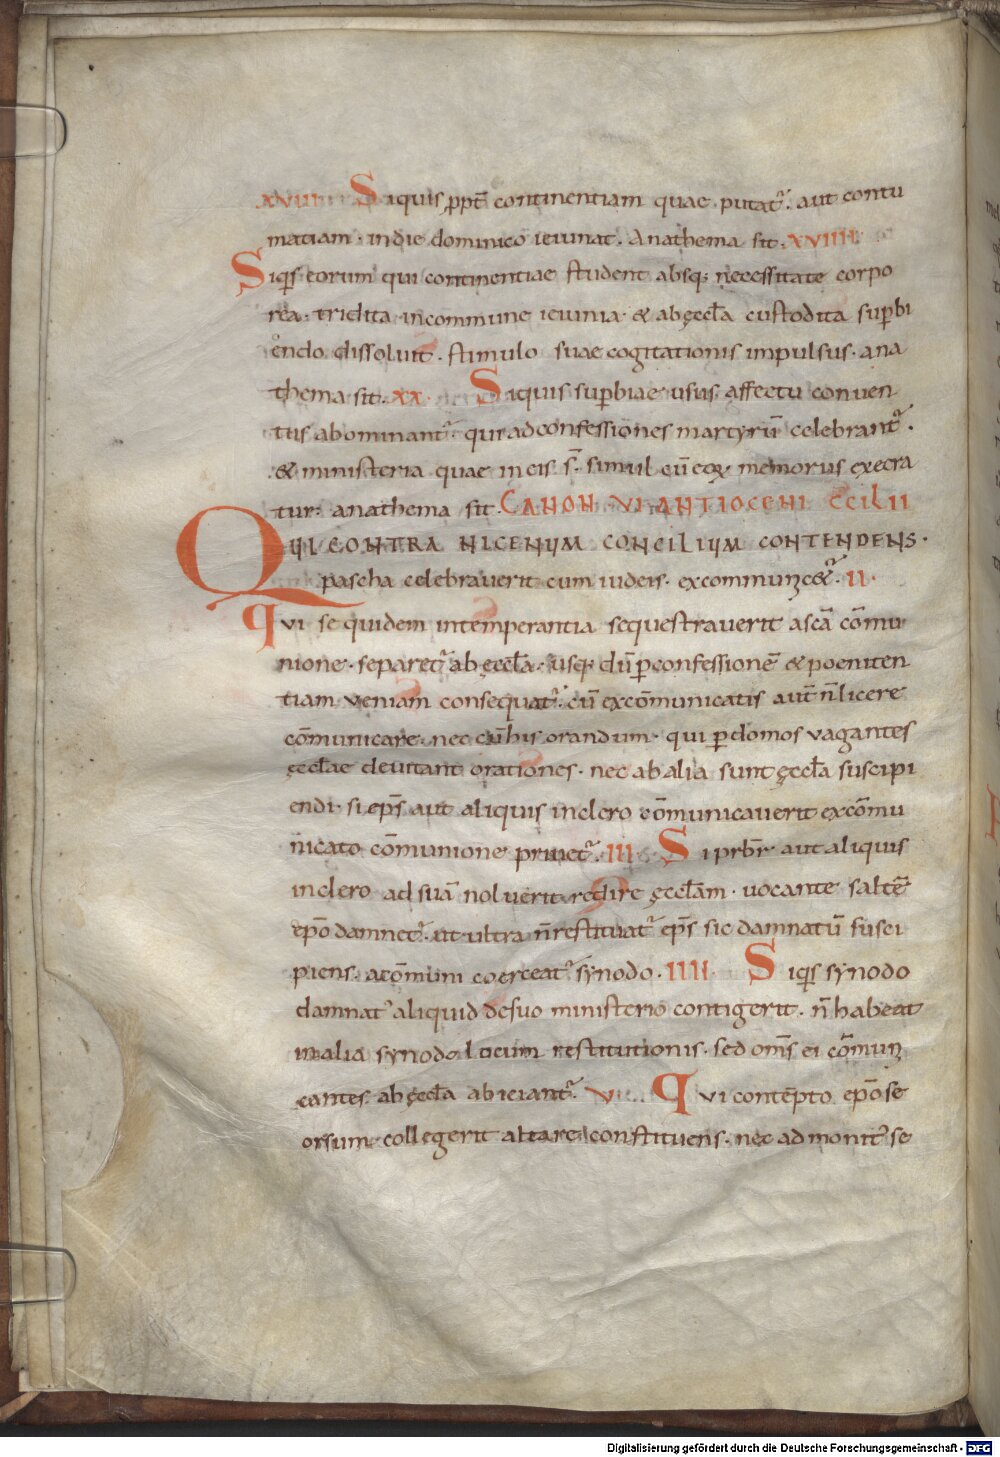 XVIII Siquis ꝓpt̄ continentiam quae putat̄ᷣ. aut contu
matiam. indie dominico ieiunat. Anathema sit. XVIIII
Siqs̄ eorum qui continentiae student absq; necessitate corpo
rea. tridita incommune ieiunia. & ab ęccl̄a custodita supbi
endo dissoluit. stimulo suae cogitationis impulsus. ana
thema sit. XX. Siquis supbiae usus affectu conuen
tus abominant̄ᷣ qui adconfessiones martyrū celebrant̄ᷣ.
& ministeria quae in eis s̄. simul cū eoꝝ memoriis execra
tur. anathema sit. CANON VI ANTIOCENI CCILII
QUI CONTRA NICENUM CONCILIUM CONTENDENS.
pascha celebrauerit cum iudeis. excommunice&ᷣ. II.
Qui se quidem intemperantia sequestrauerit ascā cōmu
nione. separet̄ᷣ ab ęccl̄a. usq; dū ꝑconfessionē & poeniten
tiam ueniam consequat̄ᷣ. cū excōmunicatis aut̄ n̄ licere
cōmunicare. nec cū his orandum. qui ꝑ domos uagantes
ęccl̄ae deuitant orationes. nec ab alia sunt ęccl̄a suscipi
endi. si ep̄s aut aliquis inclero cōmunicauerit excōmu
nicato cōmunione priuet̄ᷣ. III Si prb̄r aut aliquis
inclero ad suā noluerit redire ęccl̄am. uocante saltē
ep̄o damnet̄ᷣ. ut ultra n̄ restituat̄ᷣ ep̄s sic damnatū susci
piens. acōmuni coerceat̄ᷣ synodo. IIII. Siqs̄ synodo
damnat᾽ aliquid desuo ministerio contigerit. n̄ habeat
inalia synodo locum restitutionis. sed om̄s ei cōmuni
cantes ab ęccl̄a abiciant̄ᷣ. V Qui contēpto ep̄o se
orsum collegerit altare constituens. nec admonit᾽ se
Digitalisierung gefördert durch die Deutsche Forschungsgemeinschaft - DFG